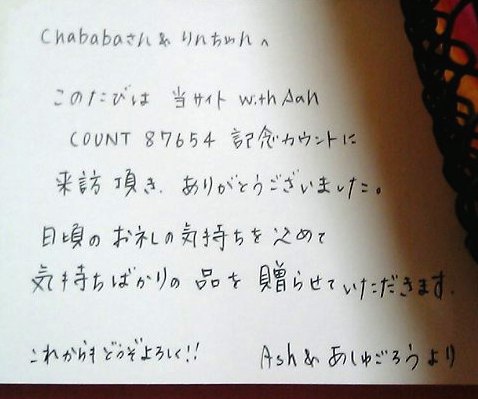 Chababaさん& りんちゃんへ
このたびは 当サイト with Ash
COUNT 87654 記念カウントに
来訪頂き、ありがとうございました。
日頃のお礼の気持ちを込めて
気持ちばかりの品を贈らせていただきます。
これからもどうぞよろしく!! Ash& あしゅごろうより